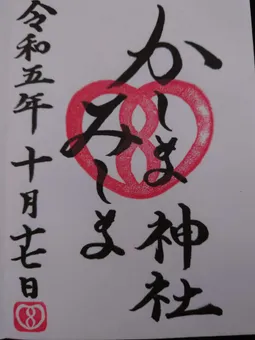 かしま神社
みしま
令和五年十月十七日